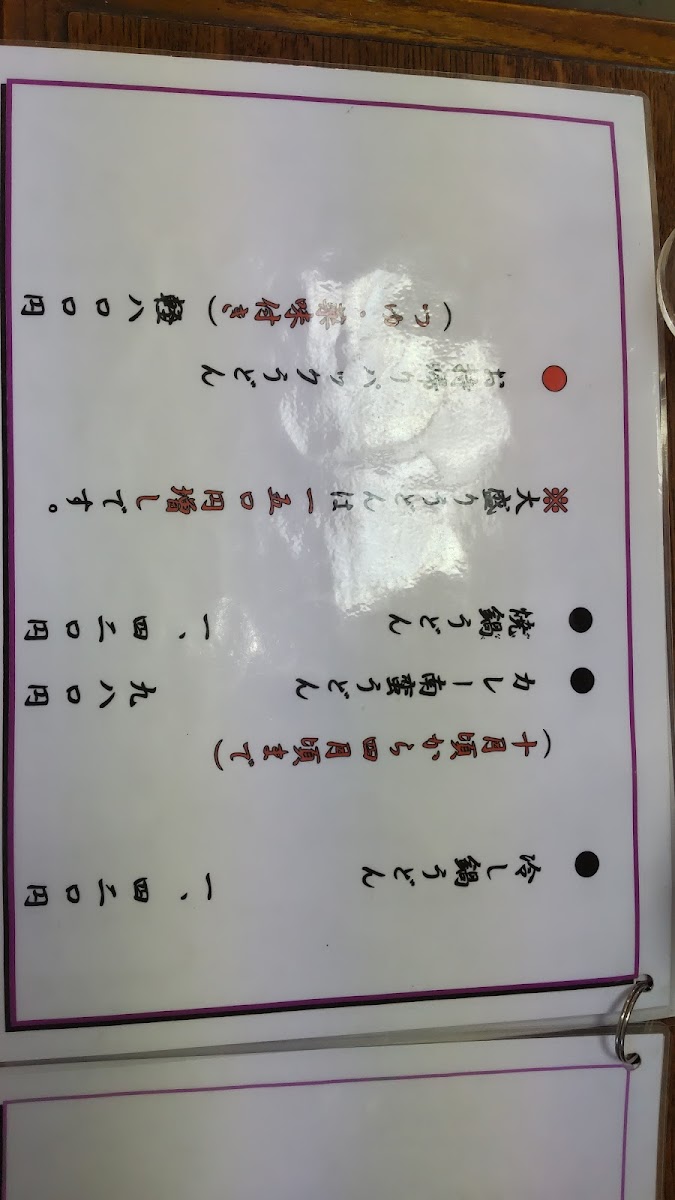 ●冷し鍋うどん 一、四二〇円
(十月頃から四月頃まで)
●カレー南蛮うどん 九八〇円
●焼鍋うどん 一、四二〇円
※大盛りうどんは一五〇円増しです。
●お持帰りパックうどん
(つゆ・薬味付き) 軽八〇〇円